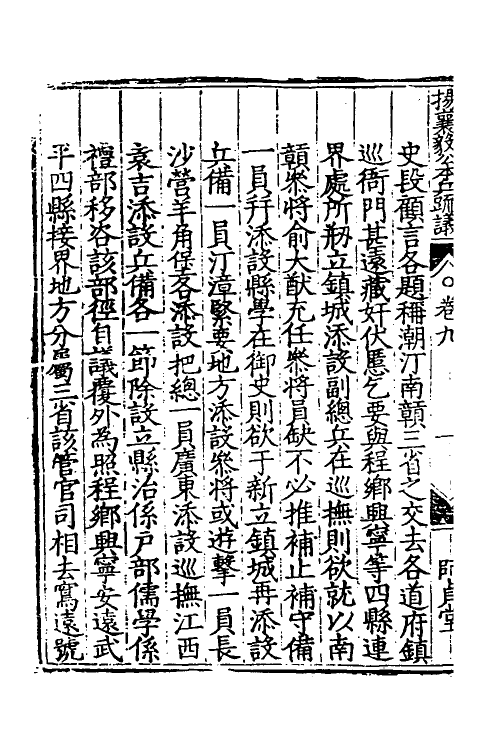 楊襄毅公本兵疏議 卷九 一 師貞堂
史段顧言各題稱潮汀南贛三省之交去各道府鎮
巡衙門甚遠藏奸伏慝乞要與程鄉興寧等四縣連
界處所刱立鎮城添設副總兵在巡撫則欲就以南
贛叅將俞大猷充任叅將員缺不必推補止補守備
一員幷添設縣學在御史則欲于新立鎮城再添設
兵備一員汀漳緊要地方添設叅將或遊擊一員長
沙營羊角堡各添設把總一員廣東添設巡撫江西
袁吉添設兵備各一節除設立縣治係戶部儒學係
禮部移咨該部徑自議覆外為照程鄉興寧安遠武
平四縣接界地方分屬三省該管官司相去寫遠號